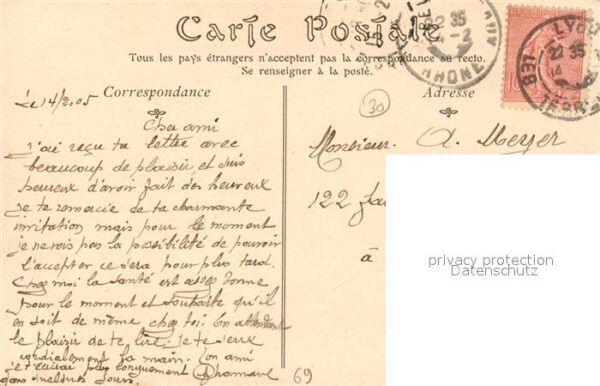 Carte Postale
Tous les pays étrangers n'acceptent pas la correspondance au recto.
Se renseigner à la poste.
Correspondance
Adresse
30
Le 14/2 05
Cher ami
J'ai reçu ta lettre avec
beaucoup de plaisir et suis
heureux d'avoir fait des heureux
je te remercie de ta charmante
invitation mais pour le moment
je ne vois pas la possibilité de pouvoir
l'accepter ce sera pour plus tard.
Chez moi la santé est assez bonne
pour le moment et souhaite qu'il
en soit de même chez toi. En attendant
le plaisir de te lire. Je te serre
cordialement la main. Ton ami
je t'écrirai plus longuement
dans quelques jours.
Monsieur. A. Meyer
122
à
privacy protection
Datenschutz
69
22 35
14-2
RHONE
LYON
22 35
14